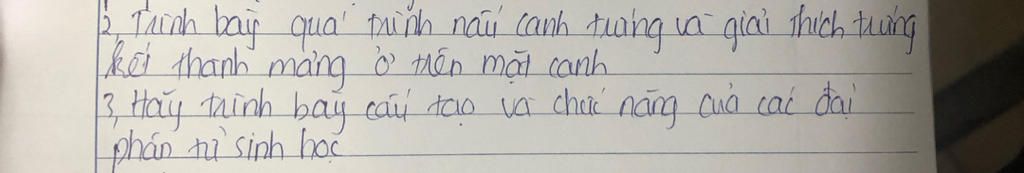 2, Trình bày quá trình nấu canh tương và giải thích tương
kết thành mảng ở trên mặt canh
3, Hãy trình bày cấu tạo và chức năng của các đại
phân tử sinh học